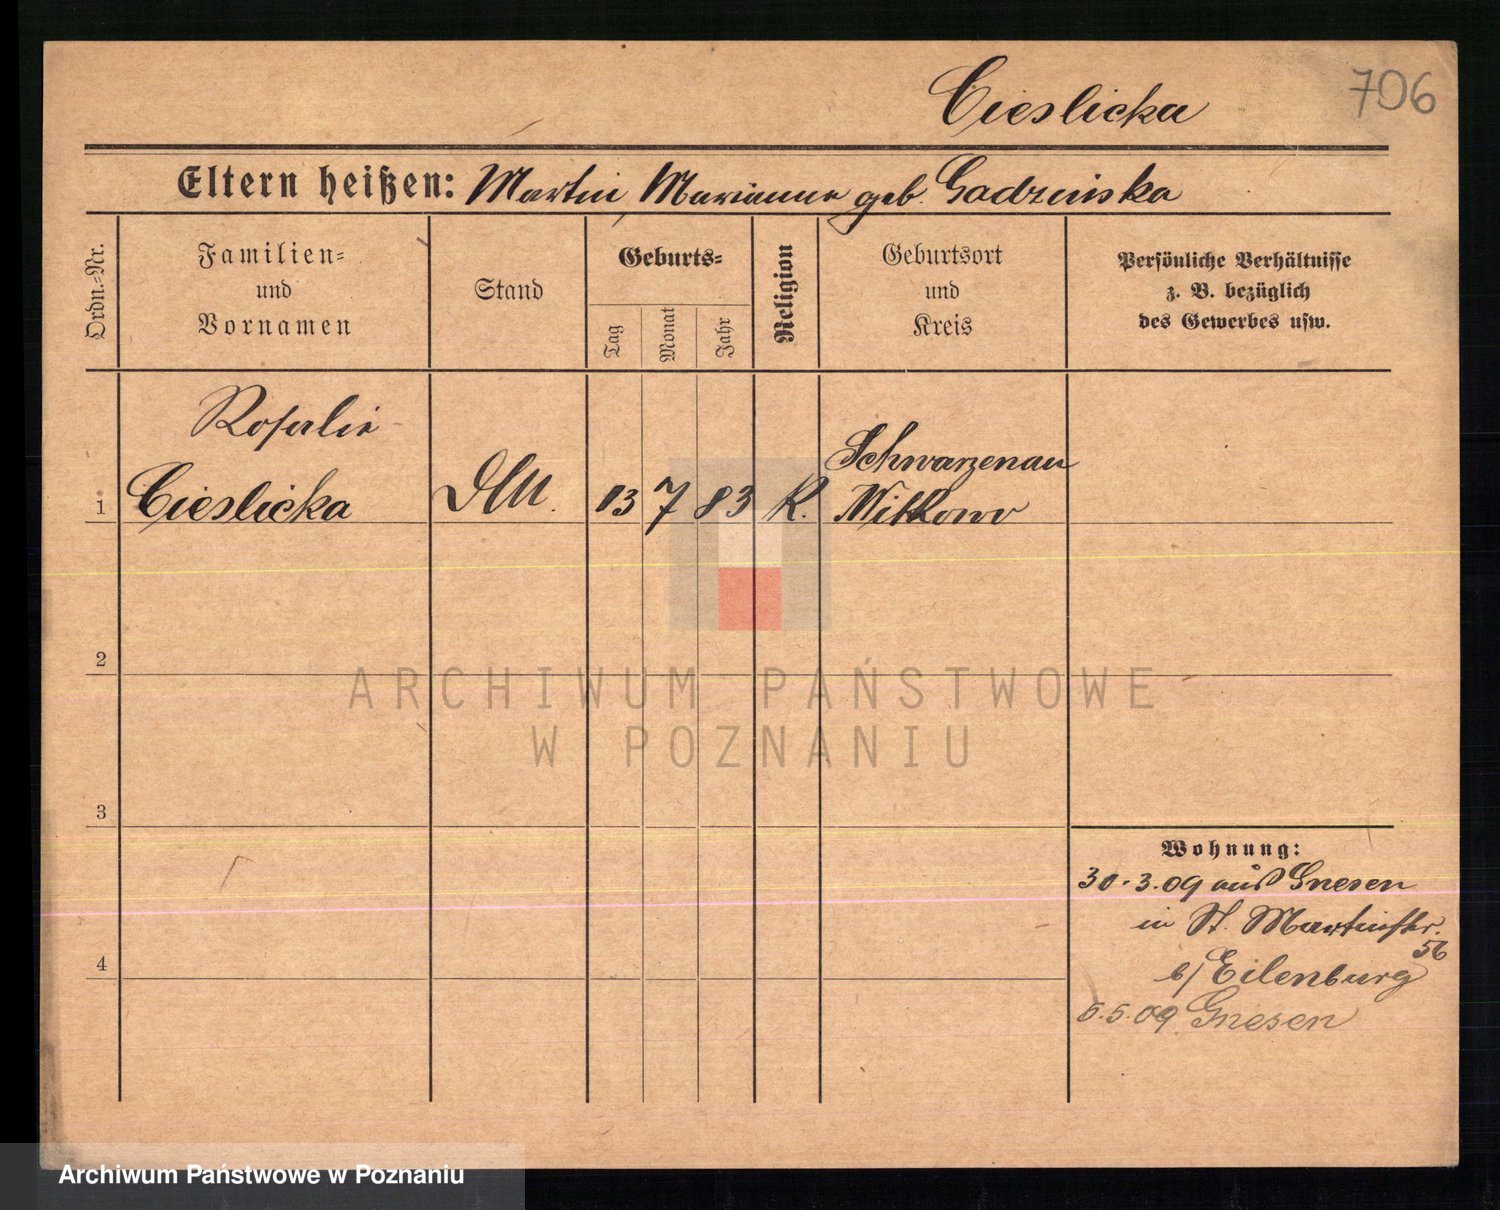 Cieslicka
706
Eltern heißen: Martin Marianne geb. Gadzinska
Ordn.-Nr.
Familien-
und
Vornamen
Stand
Geburts-
Tag
Monat
Jahr
Religion
Geburtsort
und
Kreis
Persönliche Verhältnisse
z. B. bezüglich
des Gewerbes usw.
Rosalie
1 Cieslicka 13 7 83 K. Schwarzenau
Witkowo
2
3
4
Wohnung:
30.3.09 aus Gnesen
in St. Martinstr.
56
b/ Eilenburg
5.5.09 Gnesen
ARCHIWUM PAŃSTWOWE
W POZNANIU
Archiwum Państwowe w Poznaniu